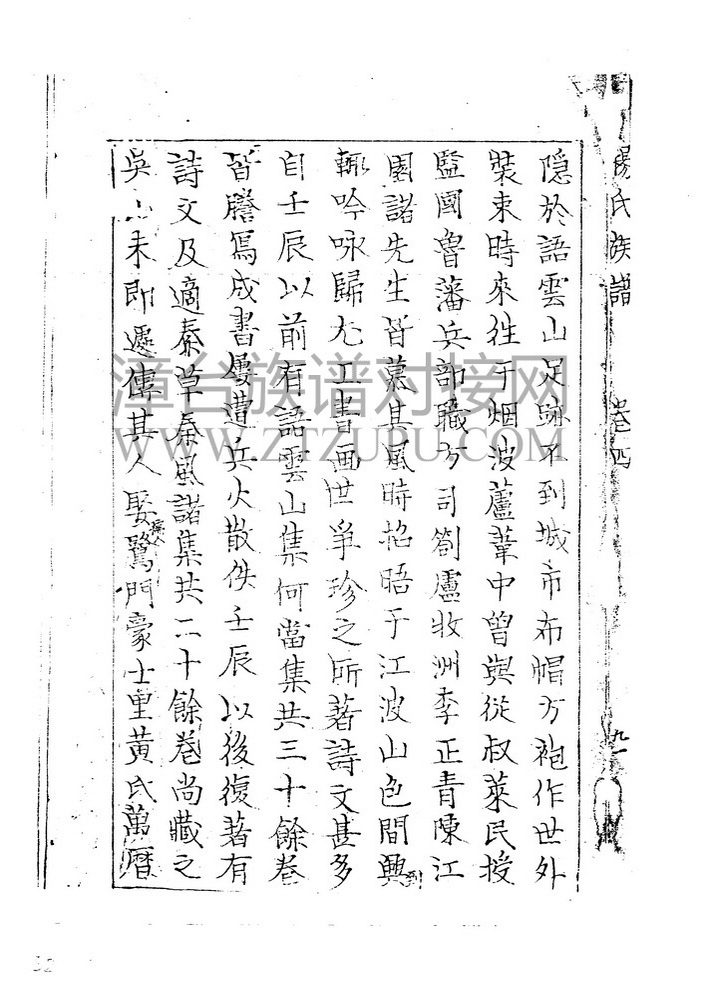 楊氏族譜 卷四 九一
隱於語雲山足跡不到城市布帽方袍作世外
裝束時來往于烟波蘆葦中曾與從叔萊民授
監國魯藩兵部職方司劄盧牧洲李正青陳江
園諸先生皆慕其風時招晤于江波山色間興到
輒吟咏歸尤工書画世爭珍之所著詩文甚多
自壬辰以前有語雲山集何當集共三十餘卷
皆謄寫成書屢遭兵火散佚壬辰以後復著有
詩文及適秦草秦風諸集共二十餘卷尚藏之
吳山未即遽傳其人娶鷺門豪士里黃氏萬曆
漳台族谱对接网
WWW.ZTZUPU.COM
32